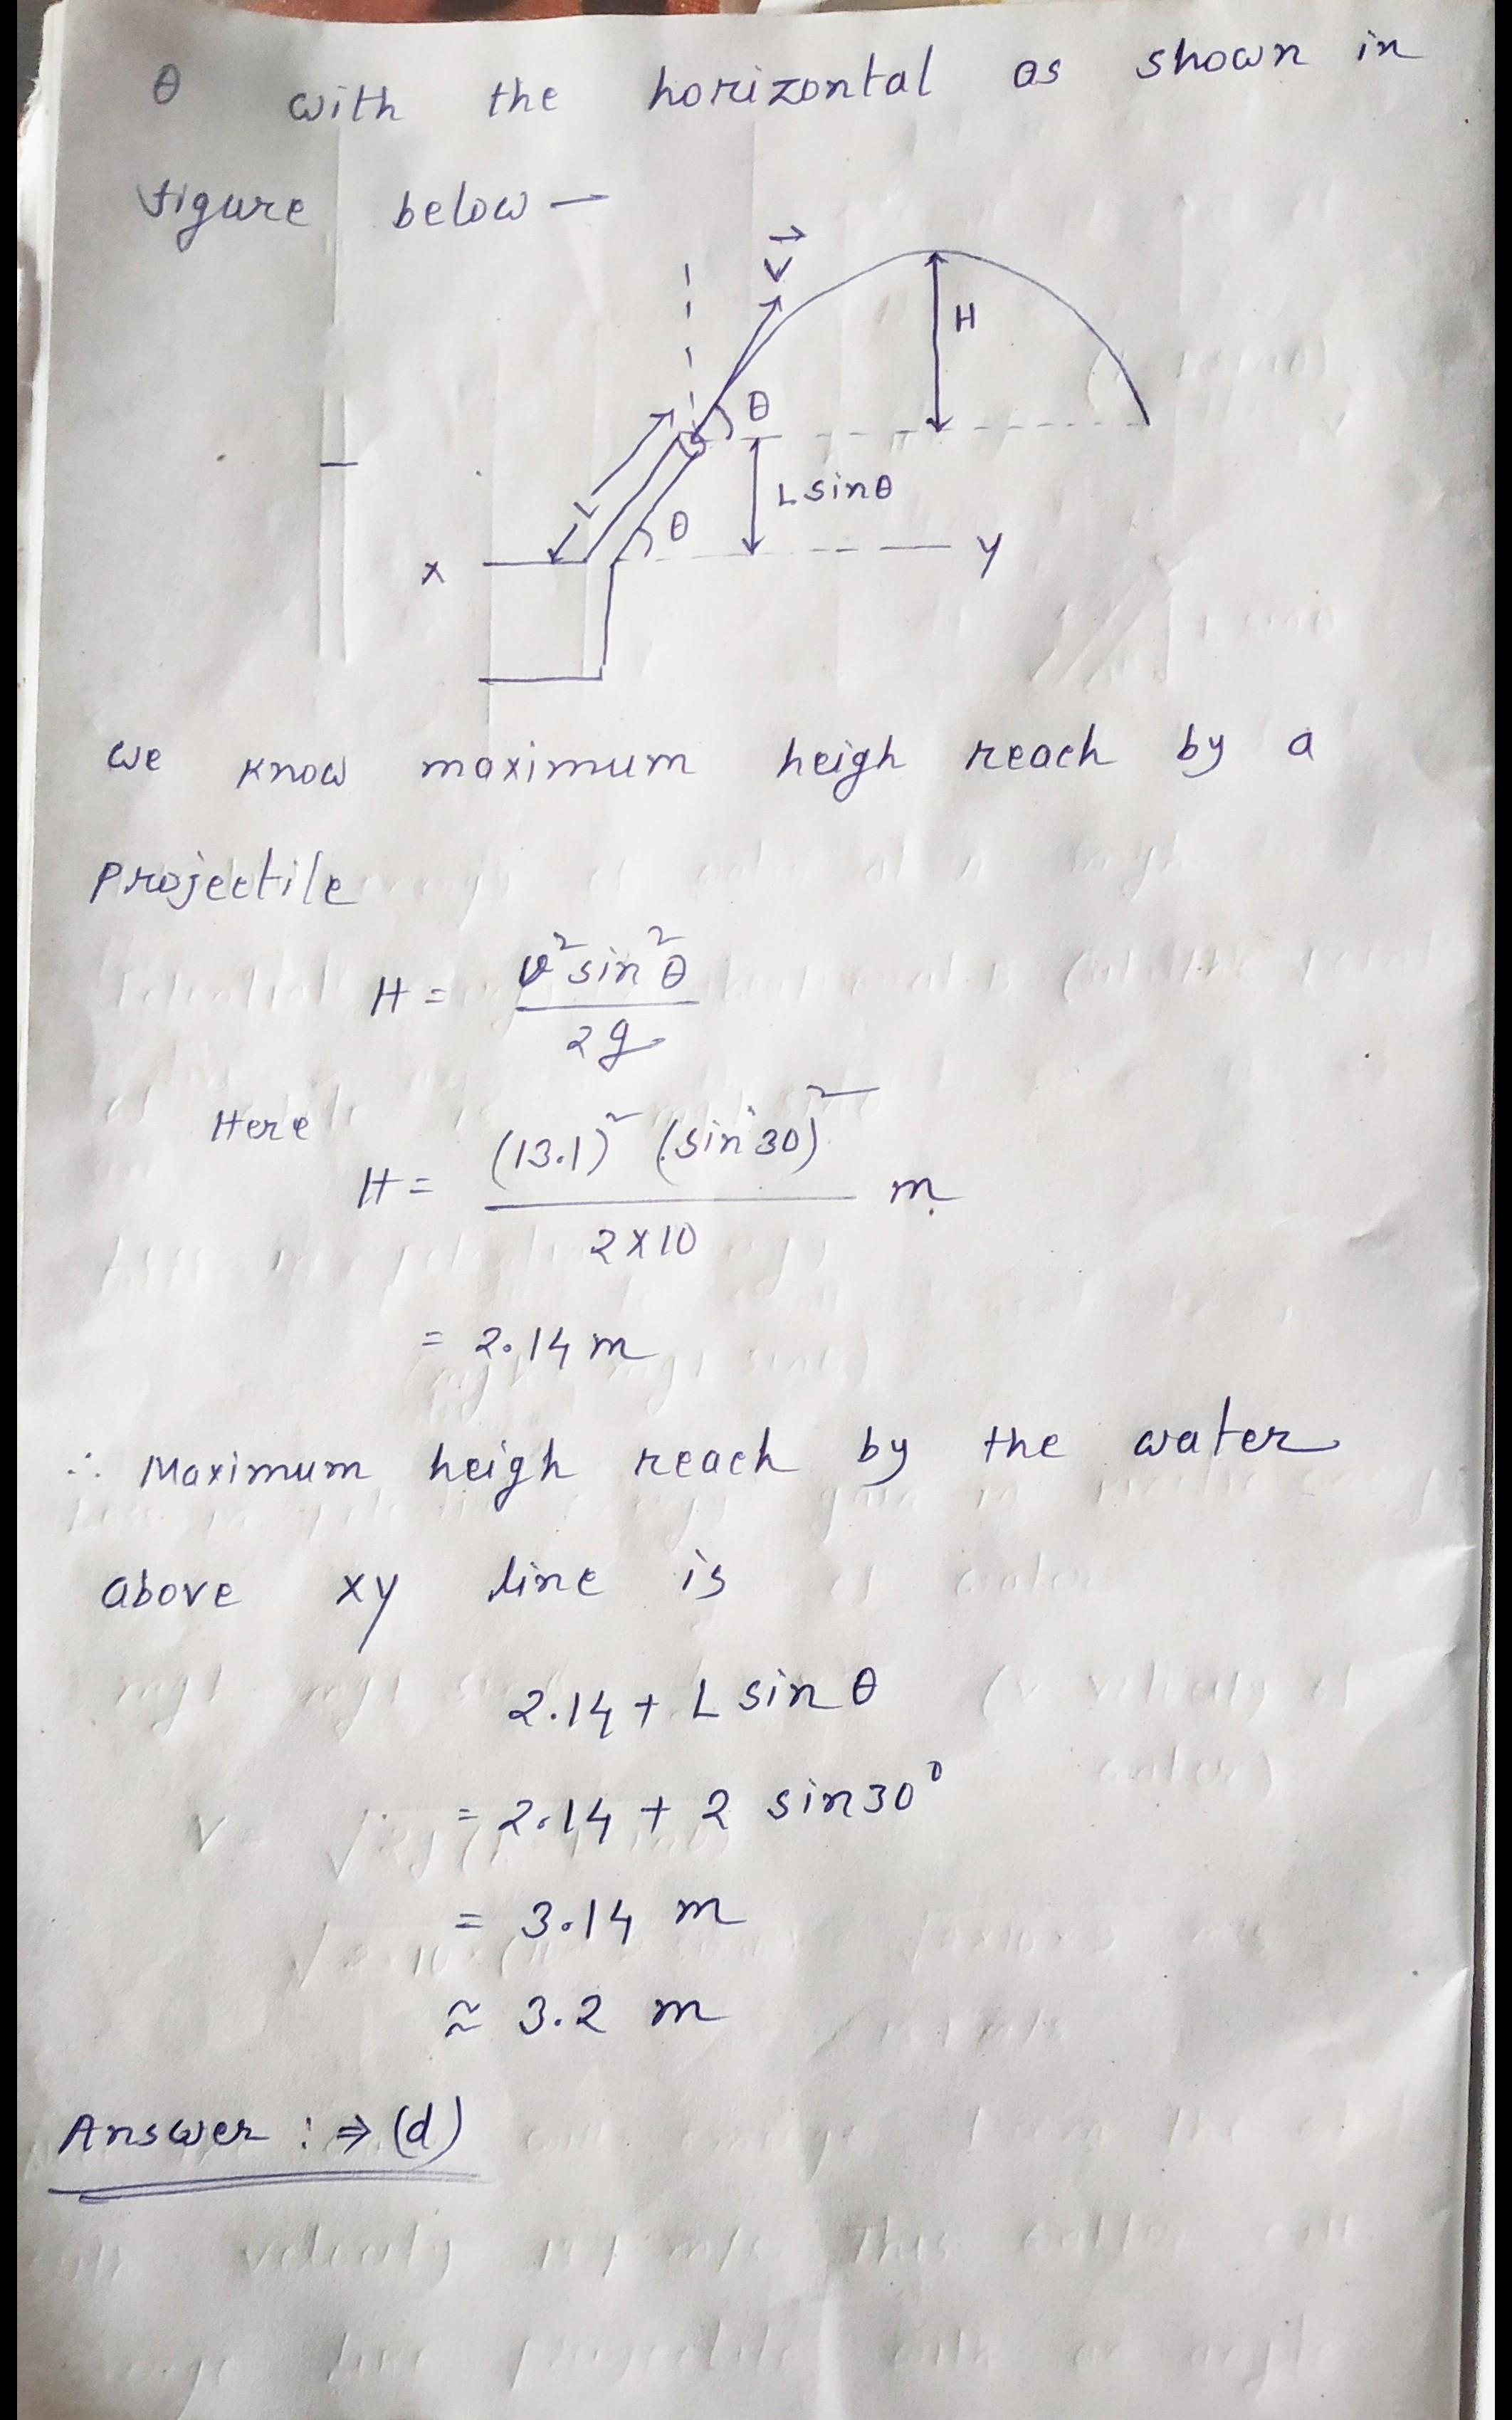 θ with the horizontal as shown in
figure below —
V⃗
H
θ
L
L sinθ
θ
x
y
we know maximum heigh reach by a
projectile
H = v² sin²θ / 2g
Here
H = (13.1)² (sin 30)² / 2×10 m
= 2.14 m
∴ Maximum heigh reach by the water
above xy line is
2.14 + L sin θ
= 2.14 + 2 sin30°
= 3.14 m
≈ 3.2 m
Answer : ⇒ (d)